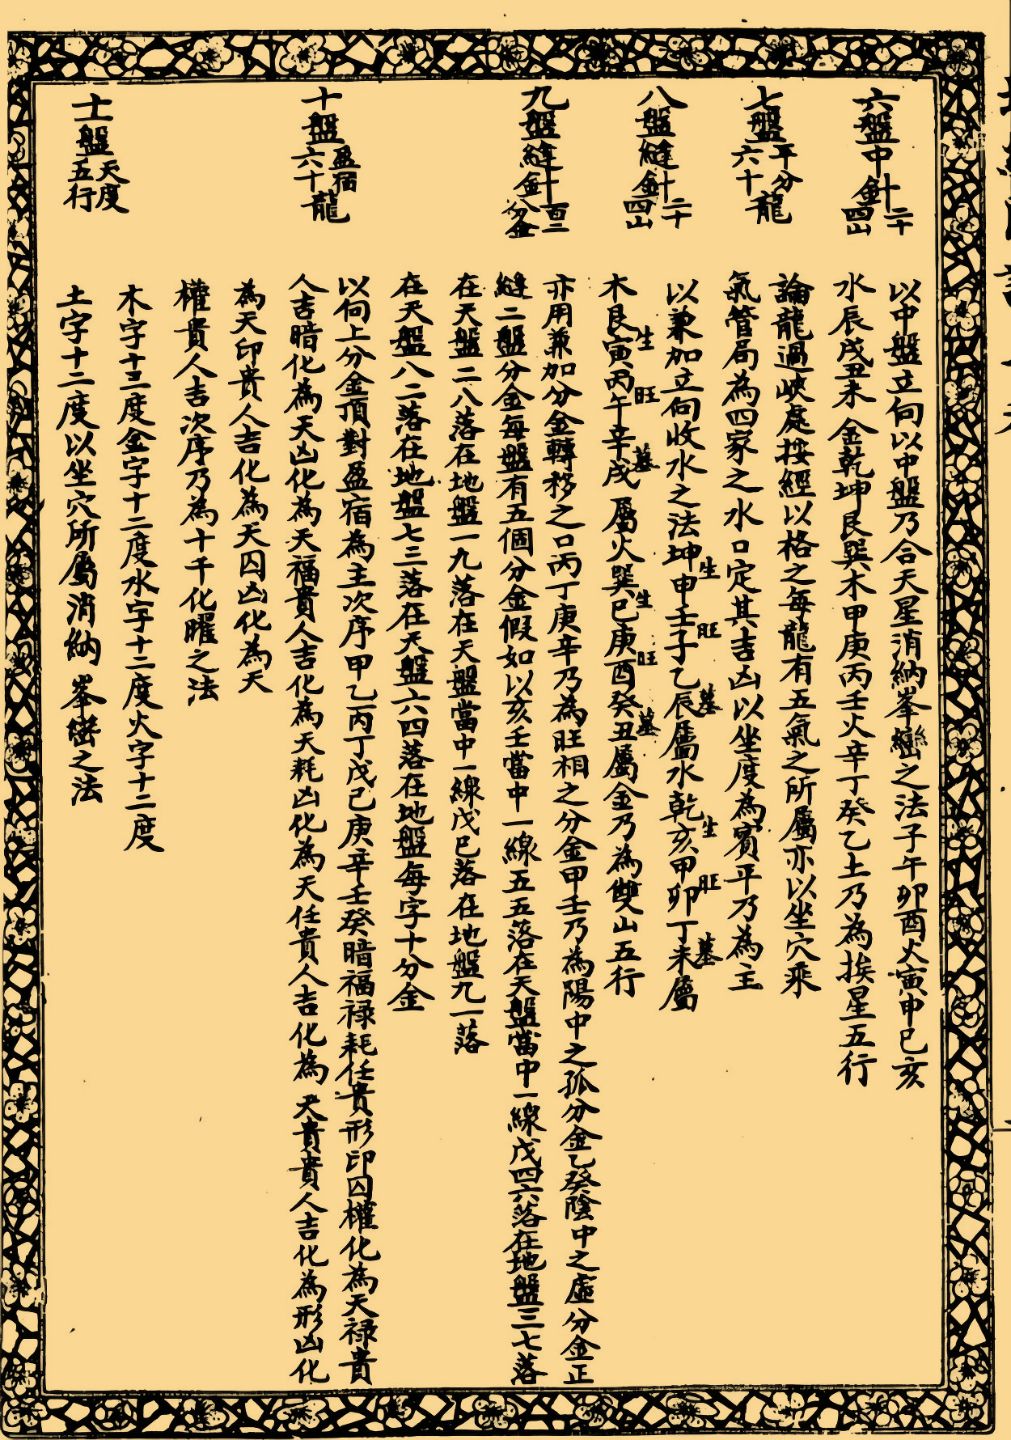 六盤中針二十四山
以中盤立向以中盤乃合天星消納峯巒之法子午卯酉火寅申巳亥
水辰戌丑未金乾坤艮巽木甲庚丙壬火辛丁癸乙土乃為挨星五行
七盤平分六十龍
論龍過峽處按經以格之每龍有五氣之所屬亦以坐穴乘
氣管局為四家之水口定其吉凶以坐度為賓平乃為主
八盤縫針二十四山
以兼加立向收水之法坤申壬子乙辰屬水乾亥甲卯丁未屬
生旺墓生旺墓
木艮寅丙午辛戌屬火巽巳庚酉癸丑屬金乃為雙山五行
生旺墓生旺墓
九盤縫針百二十分金
亦用兼加分金轉移之口丙丁庚辛乃為旺相之分金甲壬乃為陽中之孤分金乙癸陰中之虛分金正
縫二盤分金每盤有五個分金假如以亥壬當中一線五五落在天盤當中一線戊四六落在地盤三七落
在天盤二八落在地盤一九落在天盤當中一線戊巳落在地盤九一落
在天盤八二落在地盤七三落在天盤六四落在地盤每字十分金
十盤盈宿六十龍
以向上分金頂對盈宿為主次序甲乙丙丁戊己庚辛壬癸暗福祿耗任貴形印囚權化為天祿貴
人吉暗化為天凶化為天福貴人吉化為天耗凶化為天任貴人吉化為天貴貴人吉化為形凶化
為天印貴人吉化為天囚凶化為天
權貴人吉次序乃為十干化曜之法
十一盤天度五行
木字十三度金字十二度水字十二度火字十二度
土字十二度以坐穴所屬消納峯巒之法